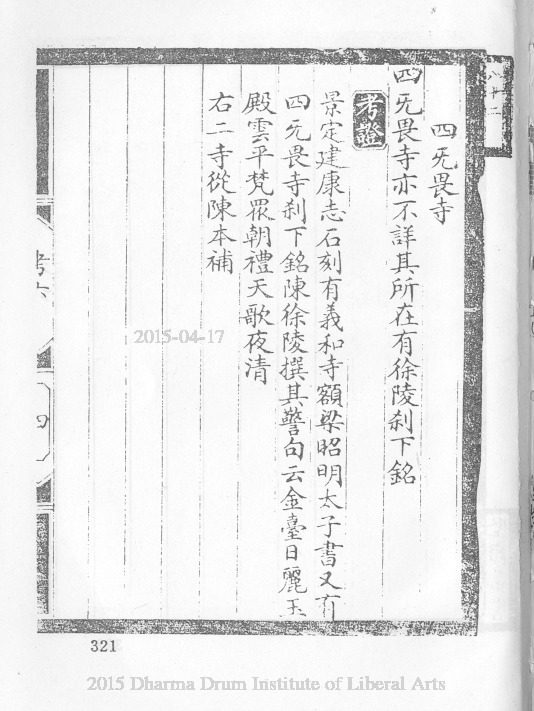 四无畏寺
四无畏寺亦不詳其所在有徐陵刹下銘
考證
景定建康志石刻有義和寺額梁昭明太子書又有
四无畏寺刹下銘陳徐陵撰其警句云金臺日麗玉
殿雲平梵眾朝禮天歌夜清
右二寺從陳本補
2015-04-17
321
2015 Dharma Drum Institute of Liberal Arts